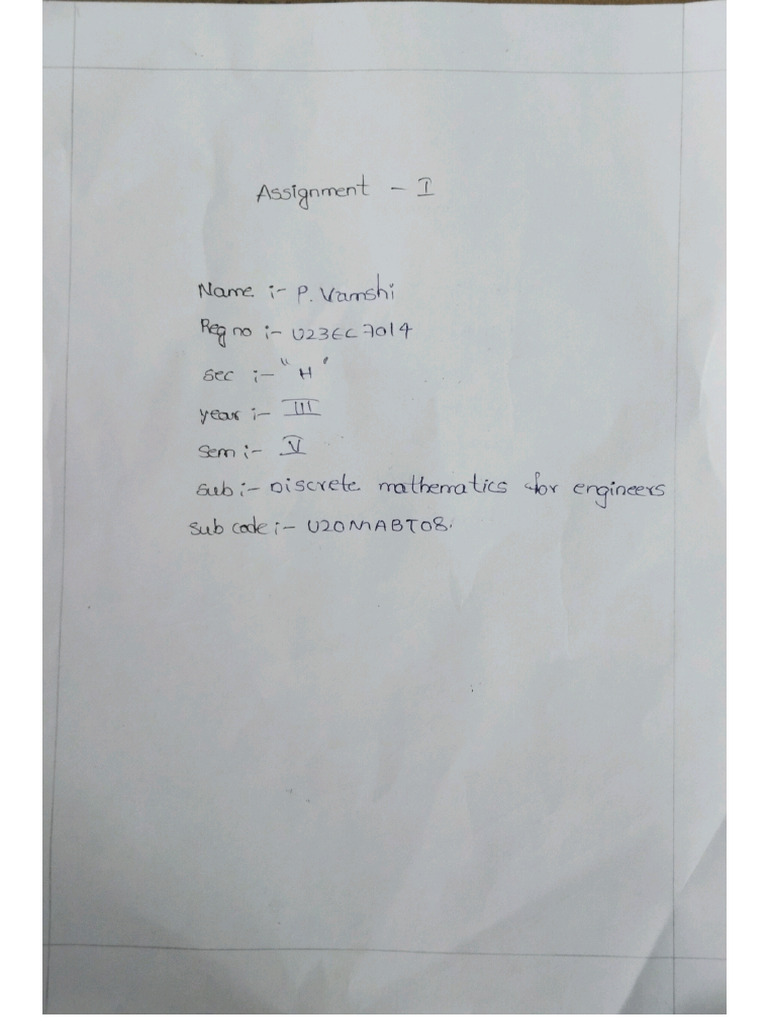 Assignment - I
Name :- P. Vamshi
Reg no :- U23EC7014
sec :- "H"
year :- III
sem :- V
sub :- Discrete mathematics for engineers
sub code :- U20MABT08.